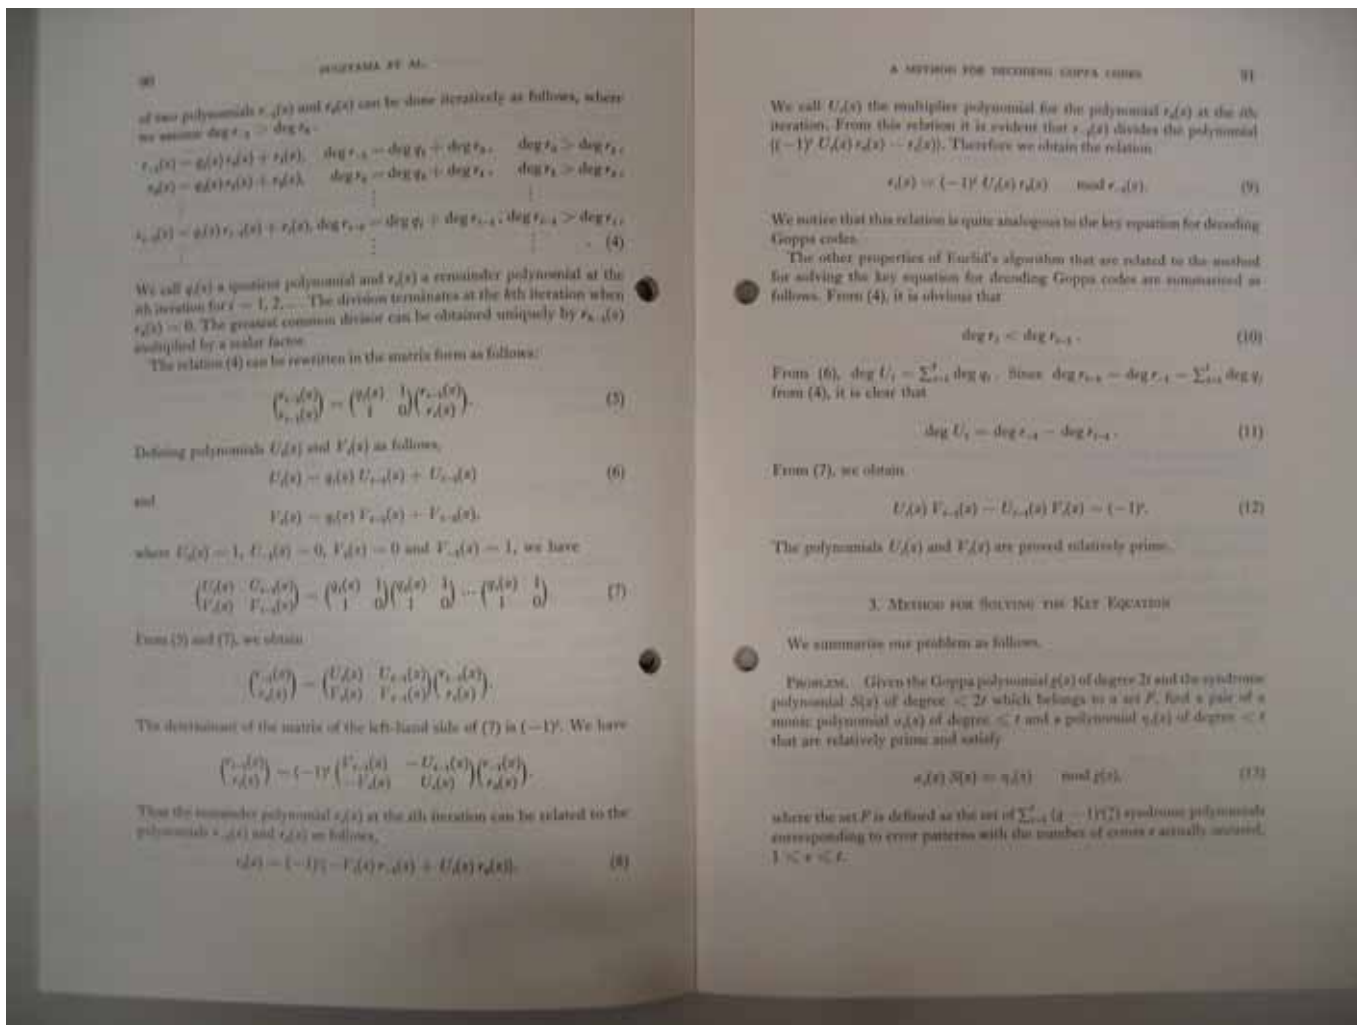 90
SUGIYAMA ET AL.
of two polynomials r₋₁(z) and r₀(z) can be done iteratively as follows, where
we assume deg r₋₁ > deg r₀.
r₋₁(z) = q₁(z) r₀(z) + r₁(z), deg r₋₁ = deg q₁ + deg r₀, deg r₀ > deg r₁,
r₀(z) = q₂(z) r₁(z) + r₂(z), deg r₀ = deg q₂ + deg r₁, deg r₁ > deg r₂,
rᵢ₋₂(z) = qᵢ(z) rᵢ₋₁(z) + rᵢ(z), deg rᵢ₋₂ = deg qᵢ + deg rᵢ₋₁, deg rᵢ₋₁ > deg rᵢ,
. (4)
We call qᵢ(z) a quotient polynomial and rᵢ(z) a remainder polynomial at the
ith iteration for i = 1, 2,.... The division terminates at the kth iteration when
rₖ(z) = 0. The greatest common divisor can be obtained uniquely by rₖ₋₁(z)
multiplied by a scalar factor.
The relation (4) can be rewritten in the matrix form as follows:
(rᵢ₋₂(z) / rᵢ₋₁(z)) = (qᵢ(z) 1 / 1 0)(rᵢ₋₁(z) / rᵢ(z)). (5)
Defining polynomials Uᵢ(z) and Vᵢ(z) as follows,
Uᵢ(z) = qᵢ(z) Uᵢ₋₁(z) + Uᵢ₋₂(z) (6)
and
Vᵢ(z) = qᵢ(z) Vᵢ₋₁(z) + Vᵢ₋₂(z),
where U₀(z) = 1, U₋₁(z) = 0, V₀(z) = 0 and V₋₁(z) = 1, we have
(Uᵢ(z) Uᵢ₋₁(z) / Vᵢ(z) Vᵢ₋₁(z)) = (q₁(z) 1 / 1 0)(q₂(z) 1 / 1 0) ⋯ (qᵢ(z) 1 / 1 0) (7)
From (5) and (7), we obtain
(r₋₁(z) / r₀(z)) = (Uᵢ(z) Uᵢ₋₁(z) / Vᵢ(z) Vᵢ₋₁(z))(rᵢ₋₁(z) / rᵢ(z)).
The determinant of the matrix of the left-hand side of (7) is (−1)ⁱ. We have
(rᵢ₋₁(z) / rᵢ(z)) = (−1)ⁱ (Vᵢ₋₁(z) −Uᵢ₋₁(z) / −Vᵢ(z) Uᵢ(z))(r₋₁(z) / r₀(z)).
Thus the remainder polynomial rᵢ(z) at the ith iteration can be related to the
polynomials r₋₁(z) and r₀(z) as follows,
rᵢ(z) = (−1)ⁱ{−Vᵢ(z) r₋₁(z) + Uᵢ(z) r₀(z)}. (8)
A METHOD FOR DECODING GOPPA CODES
91
We call Uᵢ(z) the multiplier polynomial for the polynomial r₀(z) at the ith
iteration. From this relation it is evident that r₋₁(z) divides the polynomial
{(−1)ⁱ Uᵢ(z) r₀(z) − rᵢ(z)}. Therefore we obtain the relation
rᵢ(z) = (−1)ⁱ Uᵢ(z) r₀(z) mod r₋₁(z). (9)
We notice that this relation is quite analogous to the key equation for decoding
Goppa codes.
The other properties of Euclid's algorithm that are related to the method
for solving the key equation for decoding Goppa codes are summarized as
follows. From (4), it is obvious that
deg rᵢ < deg rᵢ₋₁. (10)
From (6), deg Uᵢ = ∑ⁱⱼ₌₁ deg qⱼ. Since deg rᵢ₋₁ = deg r₋₁ − ∑ⁱⱼ₌₁ deg qⱼ
from (4), it is clear that
deg Uᵢ = deg r₋₁ − deg rᵢ₋₁. (11)
From (7), we obtain
Uᵢ(z) Vᵢ₋₁(z) − Uᵢ₋₁(z) Vᵢ(z) = (−1)ⁱ. (12)
The polynomials Uᵢ(z) and Vᵢ(z) are proved relatively prime.
3. METHOD FOR SOLVING THE KEY EQUATION
We summarize our problem as follows.
PROBLEM. Given the Goppa polynomial g(z) of degree 2t and the syndrome
polynomial S(z) of degree < 2t which belongs to a set P, find a pair of a
monic polynomial σ(z) of degree ⩽ t and a polynomial η(z) of degree < t
that are relatively prime and satisfy
S(z) mod g(z), (13)
where the set P is defined as the set of syndrome polynomials
corresponding to error patterns with the number of errors e actually occured,
1 ⩽ e ⩽ t.